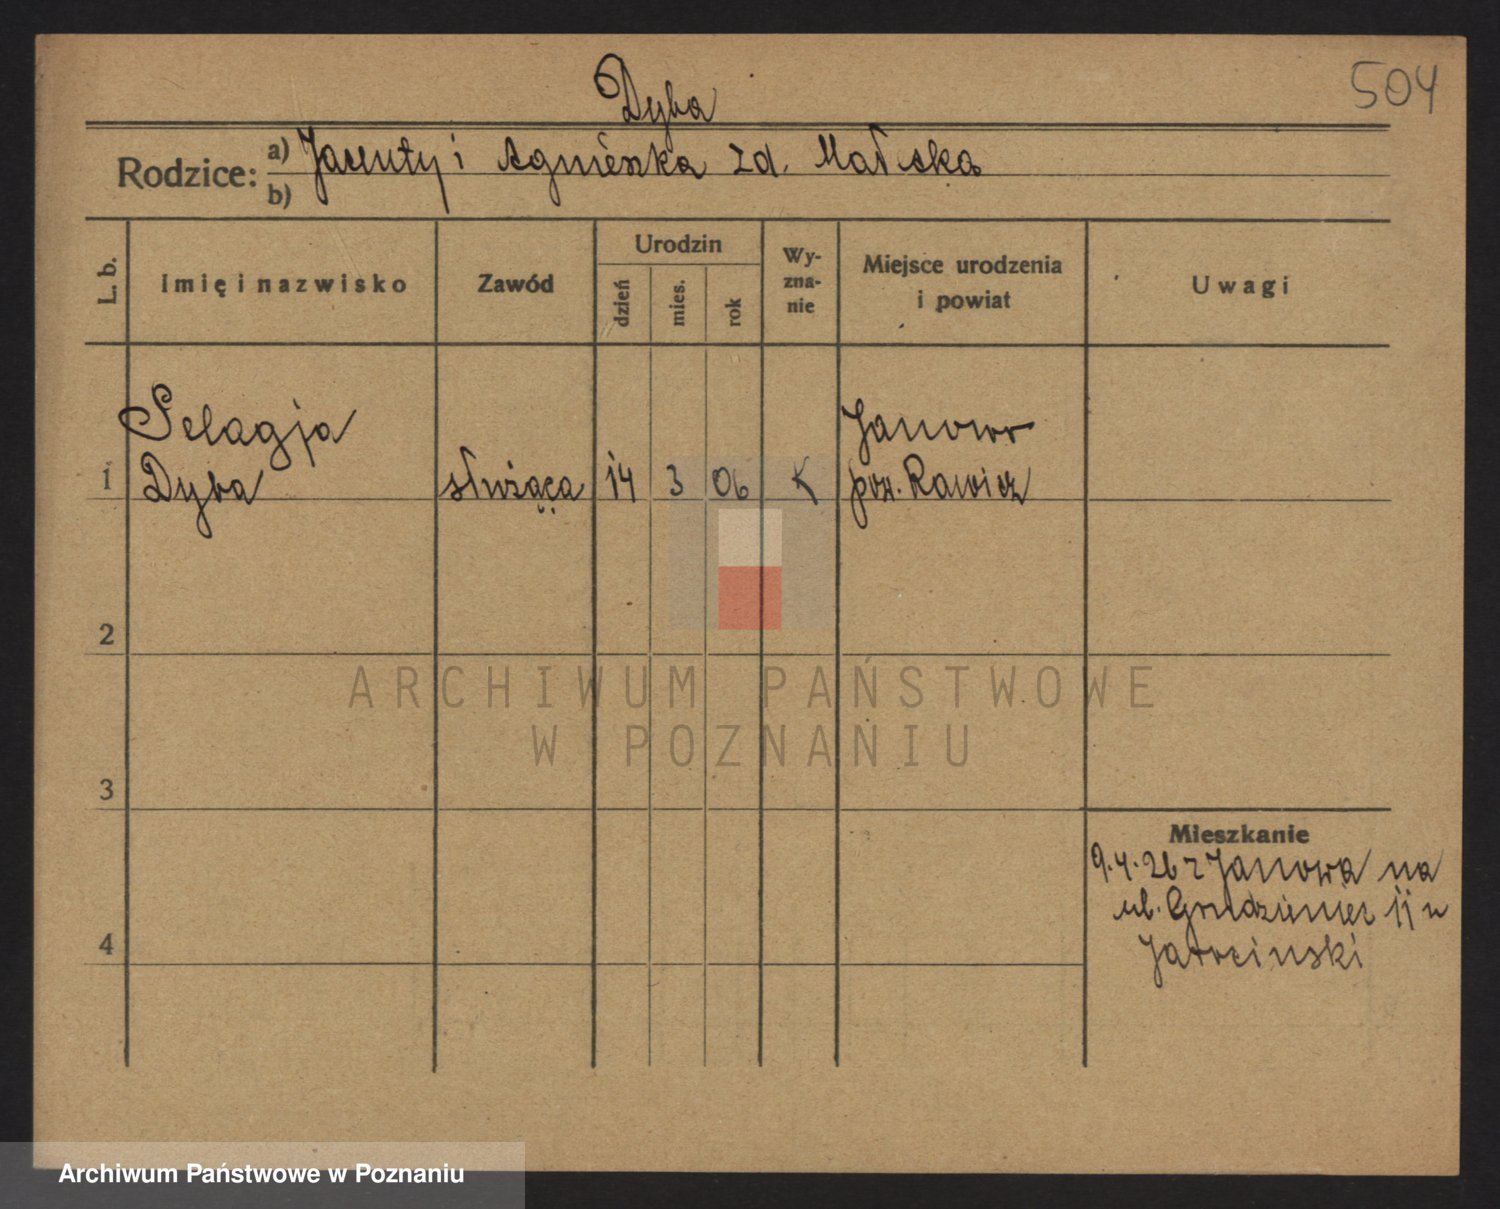 504
Dyba
Rodzice: a) Jacenty i Agnieszka zd. Małecka
b)
L. b.
Imię i nazwisko
Zawód
Urodzin
dzień
mies.
rok
Wy-
zna-
nie
Miejsce urodzenia
i powiat
Uwagi
Pelagja
Janowo
1 Dyba służąca 14 3 06 K pow. Rawicz
2
3
4
Mieszkanie
9.4.26 z Janowa na
ul. 11 u
ARCHIWUM PAŃSTWOWE
W POZNANIU
Archiwum Państwowe w Poznaniu